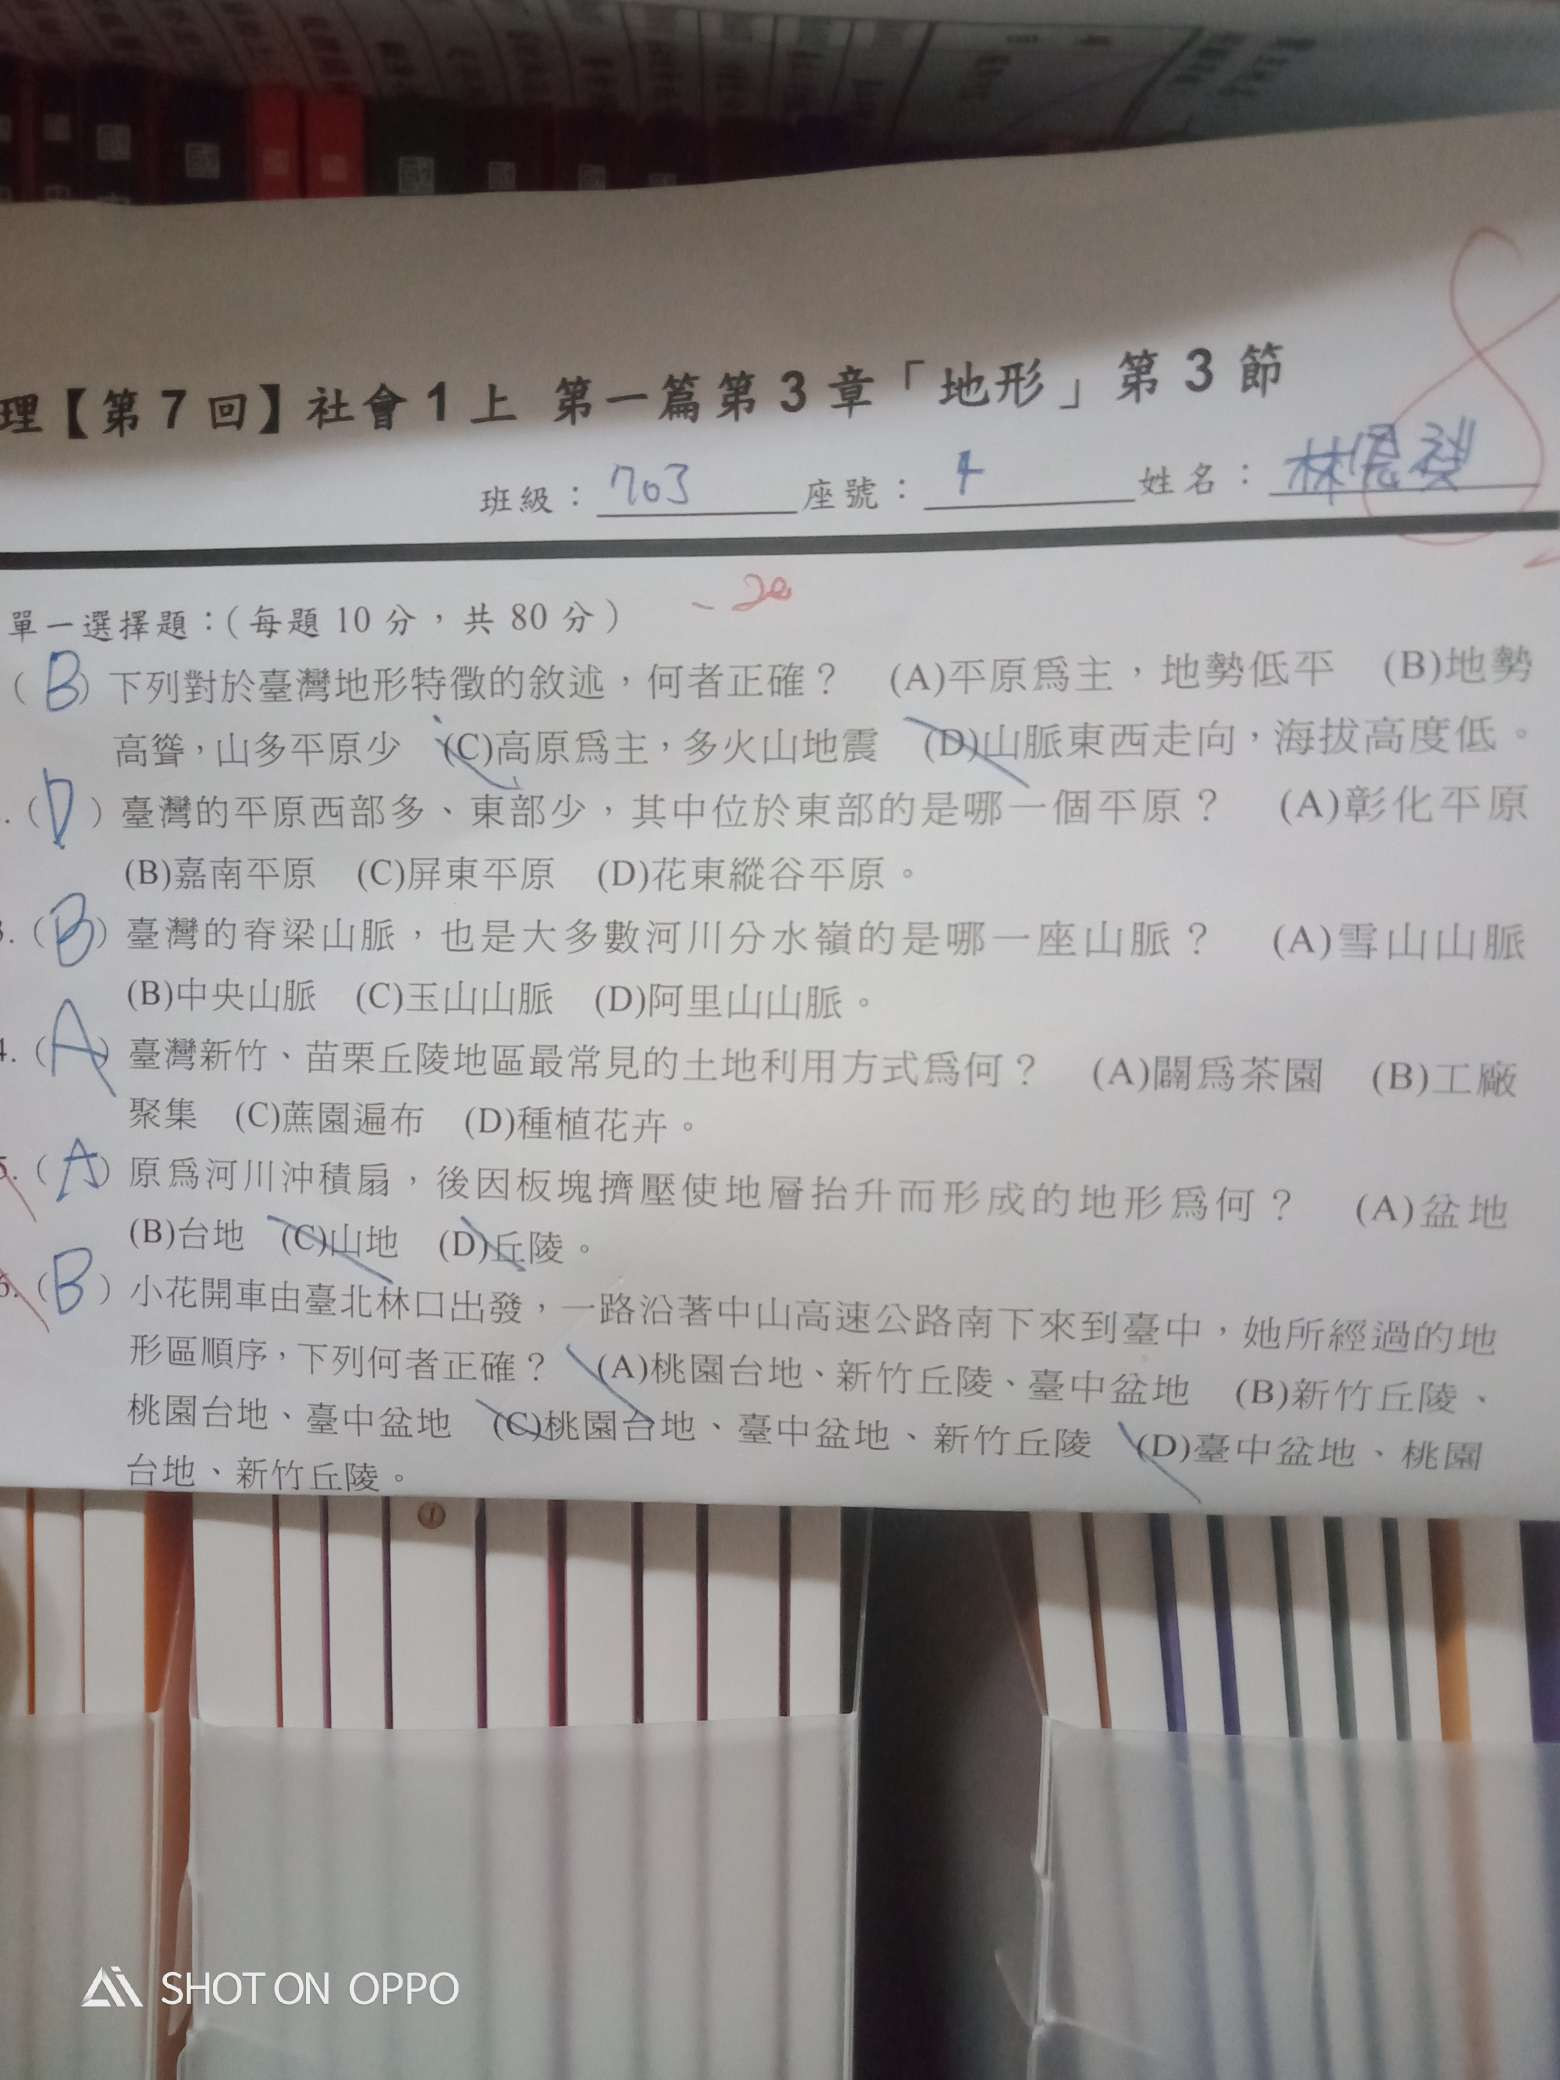 理【第7回】社會1上 第一篇第3章「地形」第3節
班級：703 座號：4 姓名：林
-20
單一選擇題：（每題10分，共80分）
（B）下列對於臺灣地形特徵的敘述，何者正確？ (A)平原為主，地勢低平 (B)地勢
高聳，山多平原少 (C)高原為主，多火山地震 (D)山脈東西走向，海拔高度低。
.（D）臺灣的平原西部多、東部少，其中位於東部的是哪一個平原？ (A)彰化平原
(B)嘉南平原 (C)屏東平原 (D)花東縱谷平原。
3.（B）臺灣的脊梁山脈，也是大多數河川分水嶺的是哪一座山脈？ (A)雪山山脈
(B)中央山脈 (C)玉山山脈 (D)阿里山山脈。
4.（A）臺灣新竹、苗栗丘陵地區最常見的土地利用方式為何？ (A)闢為茶園 (B)工廠
聚集 (C)蔗園遍布 (D)種植花卉。
5.（A）原為河川沖積扇，後因板塊擠壓使地層抬升而形成的地形為何？ (A)盆地
(B)台地 (C)山地 (D)丘陵。
6.（B）小花開車由臺北林口出發，一路沿著中山高速公路南下來到臺中，她所經過的地
形區順序，下列何者正確？ (A)桃園台地、新竹丘陵、臺中盆地 (B)新竹丘陵、
桃園台地、臺中盆地 (C)桃園台地、臺中盆地、新竹丘陵 (D)臺中盆地、桃園
台地、新竹丘陵。
SHOT ON OPPO